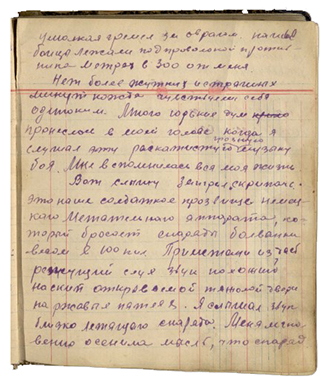 умолкая гремел за оврагом. наши
бойцы лежали под проволокой против
ника метрах в 300 от меня
Нет более жутких и страшных
минут когда чувствуешь себя
одиноким. Много горьких дум
пронеслось в моей голове, когда я
слушал эту раскатистую грозную музыку
боя. Мне вспомнилась вся моя жизнь
Вот слышу Заиграл скрипач.
это наше солдатское прозвище немец
кого метательного аппарата, ко-
торый бросает снаряды болванки
весом в 100 кил. Протяжный из час
режущий слух звук похожий
на скип открываемой тяжолой двери
на ржавых петлях. Я слышал звук
близко летящего снаряда. Меня мгно-
венно осенила мысль, что снаряд